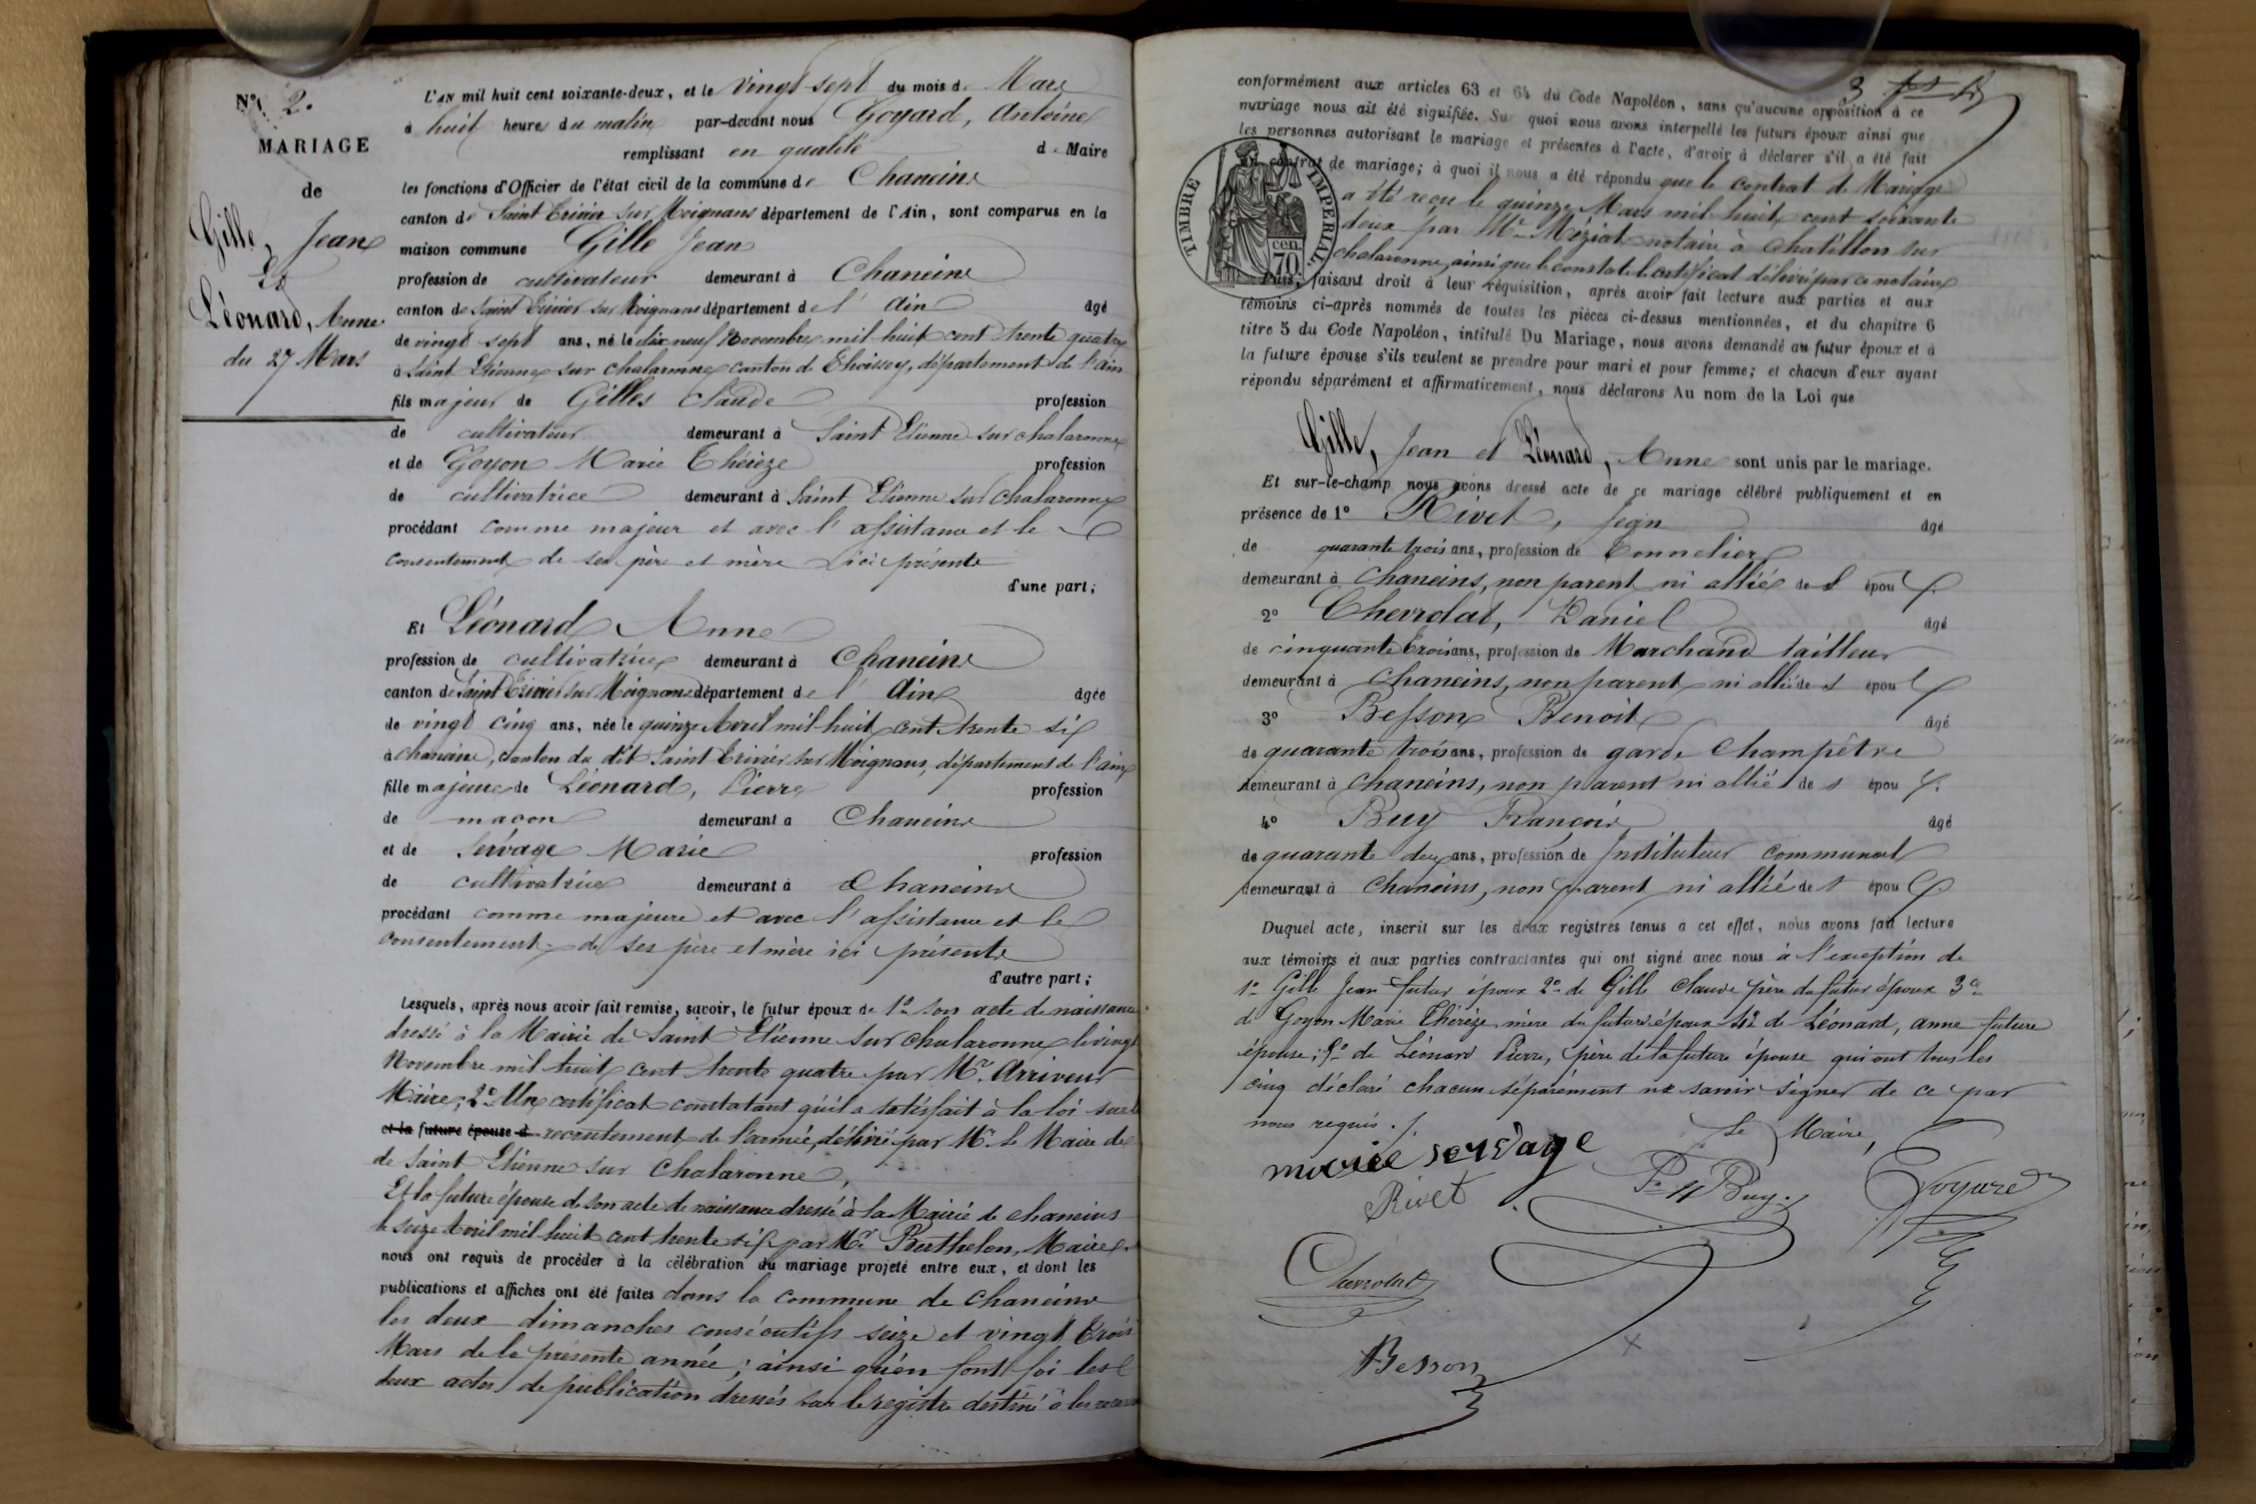 N° 2.
MARIAGE
de
Gille, Jean
Et
Léonard, Anne
du 27 Mars
L'AN mil huit cent soixante-deux, et le vingt sept du mois de Mars
à huit heures du matin par-devant nous Goyard, Antoine
remplissant en qualité de Maire
les fonctions d'Officier de l'état civil de la commune de Chaneins
canton de Saint Trivier sur Moignans département de l'Ain, sont comparus en la
maison commune Gille Jean
profession de cultivateur demeurant à Chaneins
canton de Saint Trivier sur Moignans département de l'Ain âgé
de vingt sept ans, né le dix neuf Novembre mil huit cent trente quatre
à Saint Etienne sur chalaronne canton de Thoissey, département de l'ain
fils majeur de Gilles Claude profession
de cultivateur demeurant à Saint Etienne sur chalaronne
et de Goyon Marie Thérèze profession
de cultivatrice demeurant à Saint Etienne sur Chalaronne
procédant comme majeur et avec l'assistance et le
consentement de ses père et mère ici présents
d'une part;
Et Léonard Anne
profession de cultivatrice demeurant à Chaneins
canton de Saint Trivier sur Moignans département de l'Ain âgée
de vingt cinq ans, née le quinze Avril mil huit cent trente six
à chaneins, canton du dit Saint Trivier sur Moignans, département de l'ain
fille majeure de Léonard, Pierre profession
de maçon demeurant à Chaneins
et de Servage Marie profession
de cultivatrice demeurant à Chaneins
procédant comme majeure et avec l'assistance et le
consentement de ses père et mère ici présents
d'autre part;
Lesquels, après nous avoir fait remise, savoir, le futur époux de 1° son acte de naissance
dressé à la Mairie de Saint Etienne sur Chalaronne le vingt
Novembre mil huit cent trente quatre par Mr. Arriveur
Maire; 2° Un certificat constatant qu'il a satisfait à la loi sur le
et la future épouse d recrutement de l'armée, délivré par Mr. le Maire de
de Saint Etienne sur Chalaronne,
Et la future épouse de son acte de naissance dressé à la Mairie de chaneins
le seize Avril mil huit cent trente six par Mr Berthelon, Maire,
nous ont requis de procéder à la célébration du mariage projeté entre eux, et dont les
publications et affiches ont été faites dans la commune de Chaneins
les deux dimanches consécutifs seize et vingt trois
Mars de la présente année; ainsi qu'en font foi les
deux actes de publication dressés sur le registre destiné à les recevoir
3
conformément aux articles 63 et 64 du Code Napoléon, sans qu'aucune opposition à ce
mariage nous ait été signifiée. Sur quoi nous avons interpellé les futurs époux ainsi que
les personnes autorisant le mariage et présentes à l'acte, d'avoir à déclarer s'il a été fait
contrat de mariage; à quoi il nous a été répondu que le contrat de Mariage
a été reçu le quinze Mars mil huit cent soixante
deux par Mr. Méziat notaire à Chatillon sur
chalaronne, ainsi que le constate le certificat délivré par ce notaire
TIMBRE IMPÉRIAL
70 cen.
Puis, faisant droit à leur réquisition, après avoir fait lecture aux parties et aux
témoins ci-après nommés de toutes les pièces ci-dessus mentionnées, et du chapitre 6
titre 5 du Code Napoléon, intitulé Du Mariage, nous avons demandé au futur époux et à
la future épouse s'ils veulent se prendre pour mari et pour femme; et chacun d'eux ayant
répondu séparément et affirmativement, nous déclarons Au nom de la Loi que
Gille, Jean et Léonard, Anne sont unis par le mariage.
Et sur-le-champ nous avons dressé acte de ce mariage célébré publiquement et en
présence de 1° Rivet, Jean âgé
de quarante trois ans, profession de Tonnelier
demeurant à Chaneins, non parent ni allié des épou x.
2° Chevrolat, Daniel âgé
de cinquante trois ans, profession de Marchand tailleur
demeurant à Chaneins, non parent ni allié des épou x
3° Besson Benoit âgé
de quarante trois ans, profession de garde Champêtre
demeurant à Chaneins, non parent ni allié des épou x.
4° Buy François âgé
de quarante deux ans, profession de Instituteur communal
demeurant à Chaneins, non parent ni allié des épou x
Duquel acte, inscrit sur les deux registres tenus à cet effet, nous avons fait lecture
aux témoins et aux parties contractantes qui ont signé avec nous à l'exception de
1° Gille Jean futur époux 2° de Gille Claude père du futur époux 3°
de Goyon Marie Thérèze mère du futur époux 4° de Léonard, anne future
épouse; 5° de Léonard Pierre, père de la future épouse qui ont tous les
cinq déclaré chacun séparément ne savoir signer de ce par
nous requis./.
Le Maire,
marie servage
Rivet
Buy
Goyard
Chevrolat
Besson